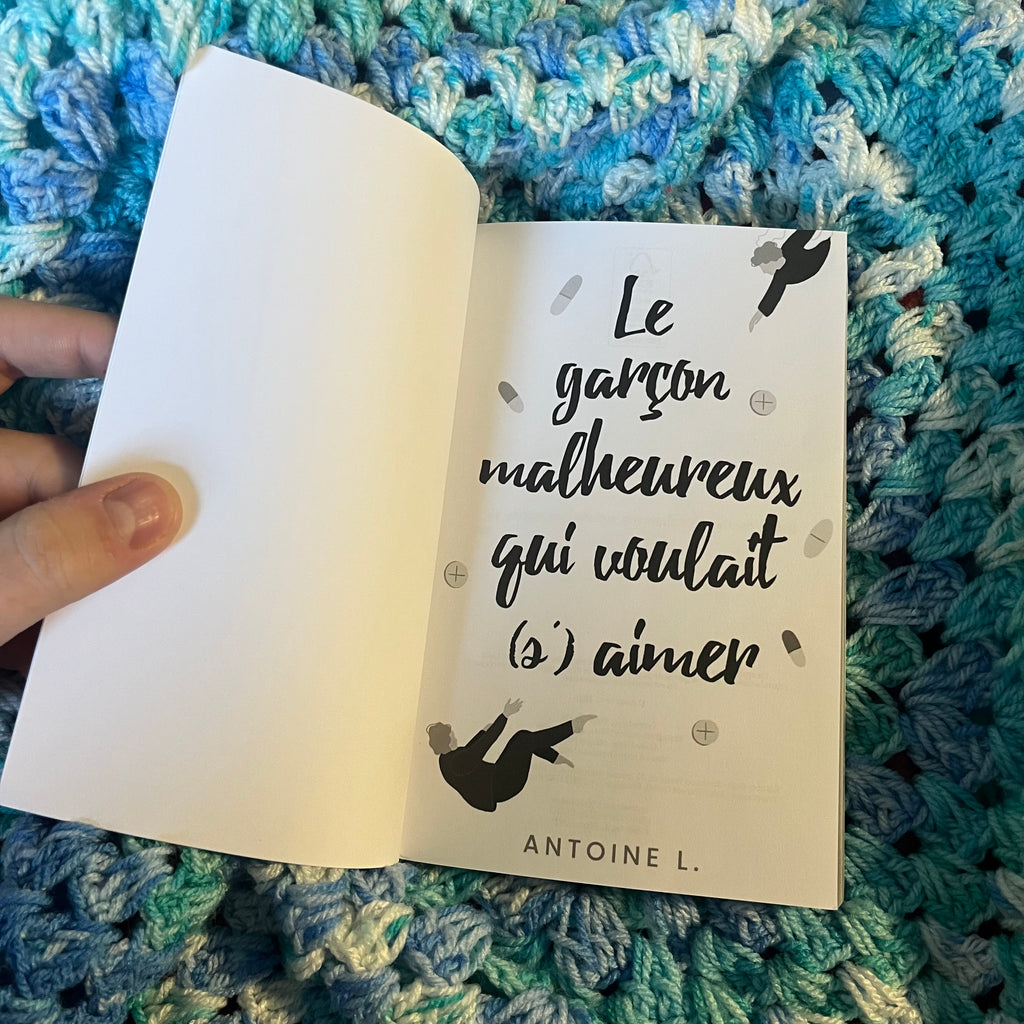 Le
garçon
malheureux
qui voulait
(s') aimer
ANTOINE L.